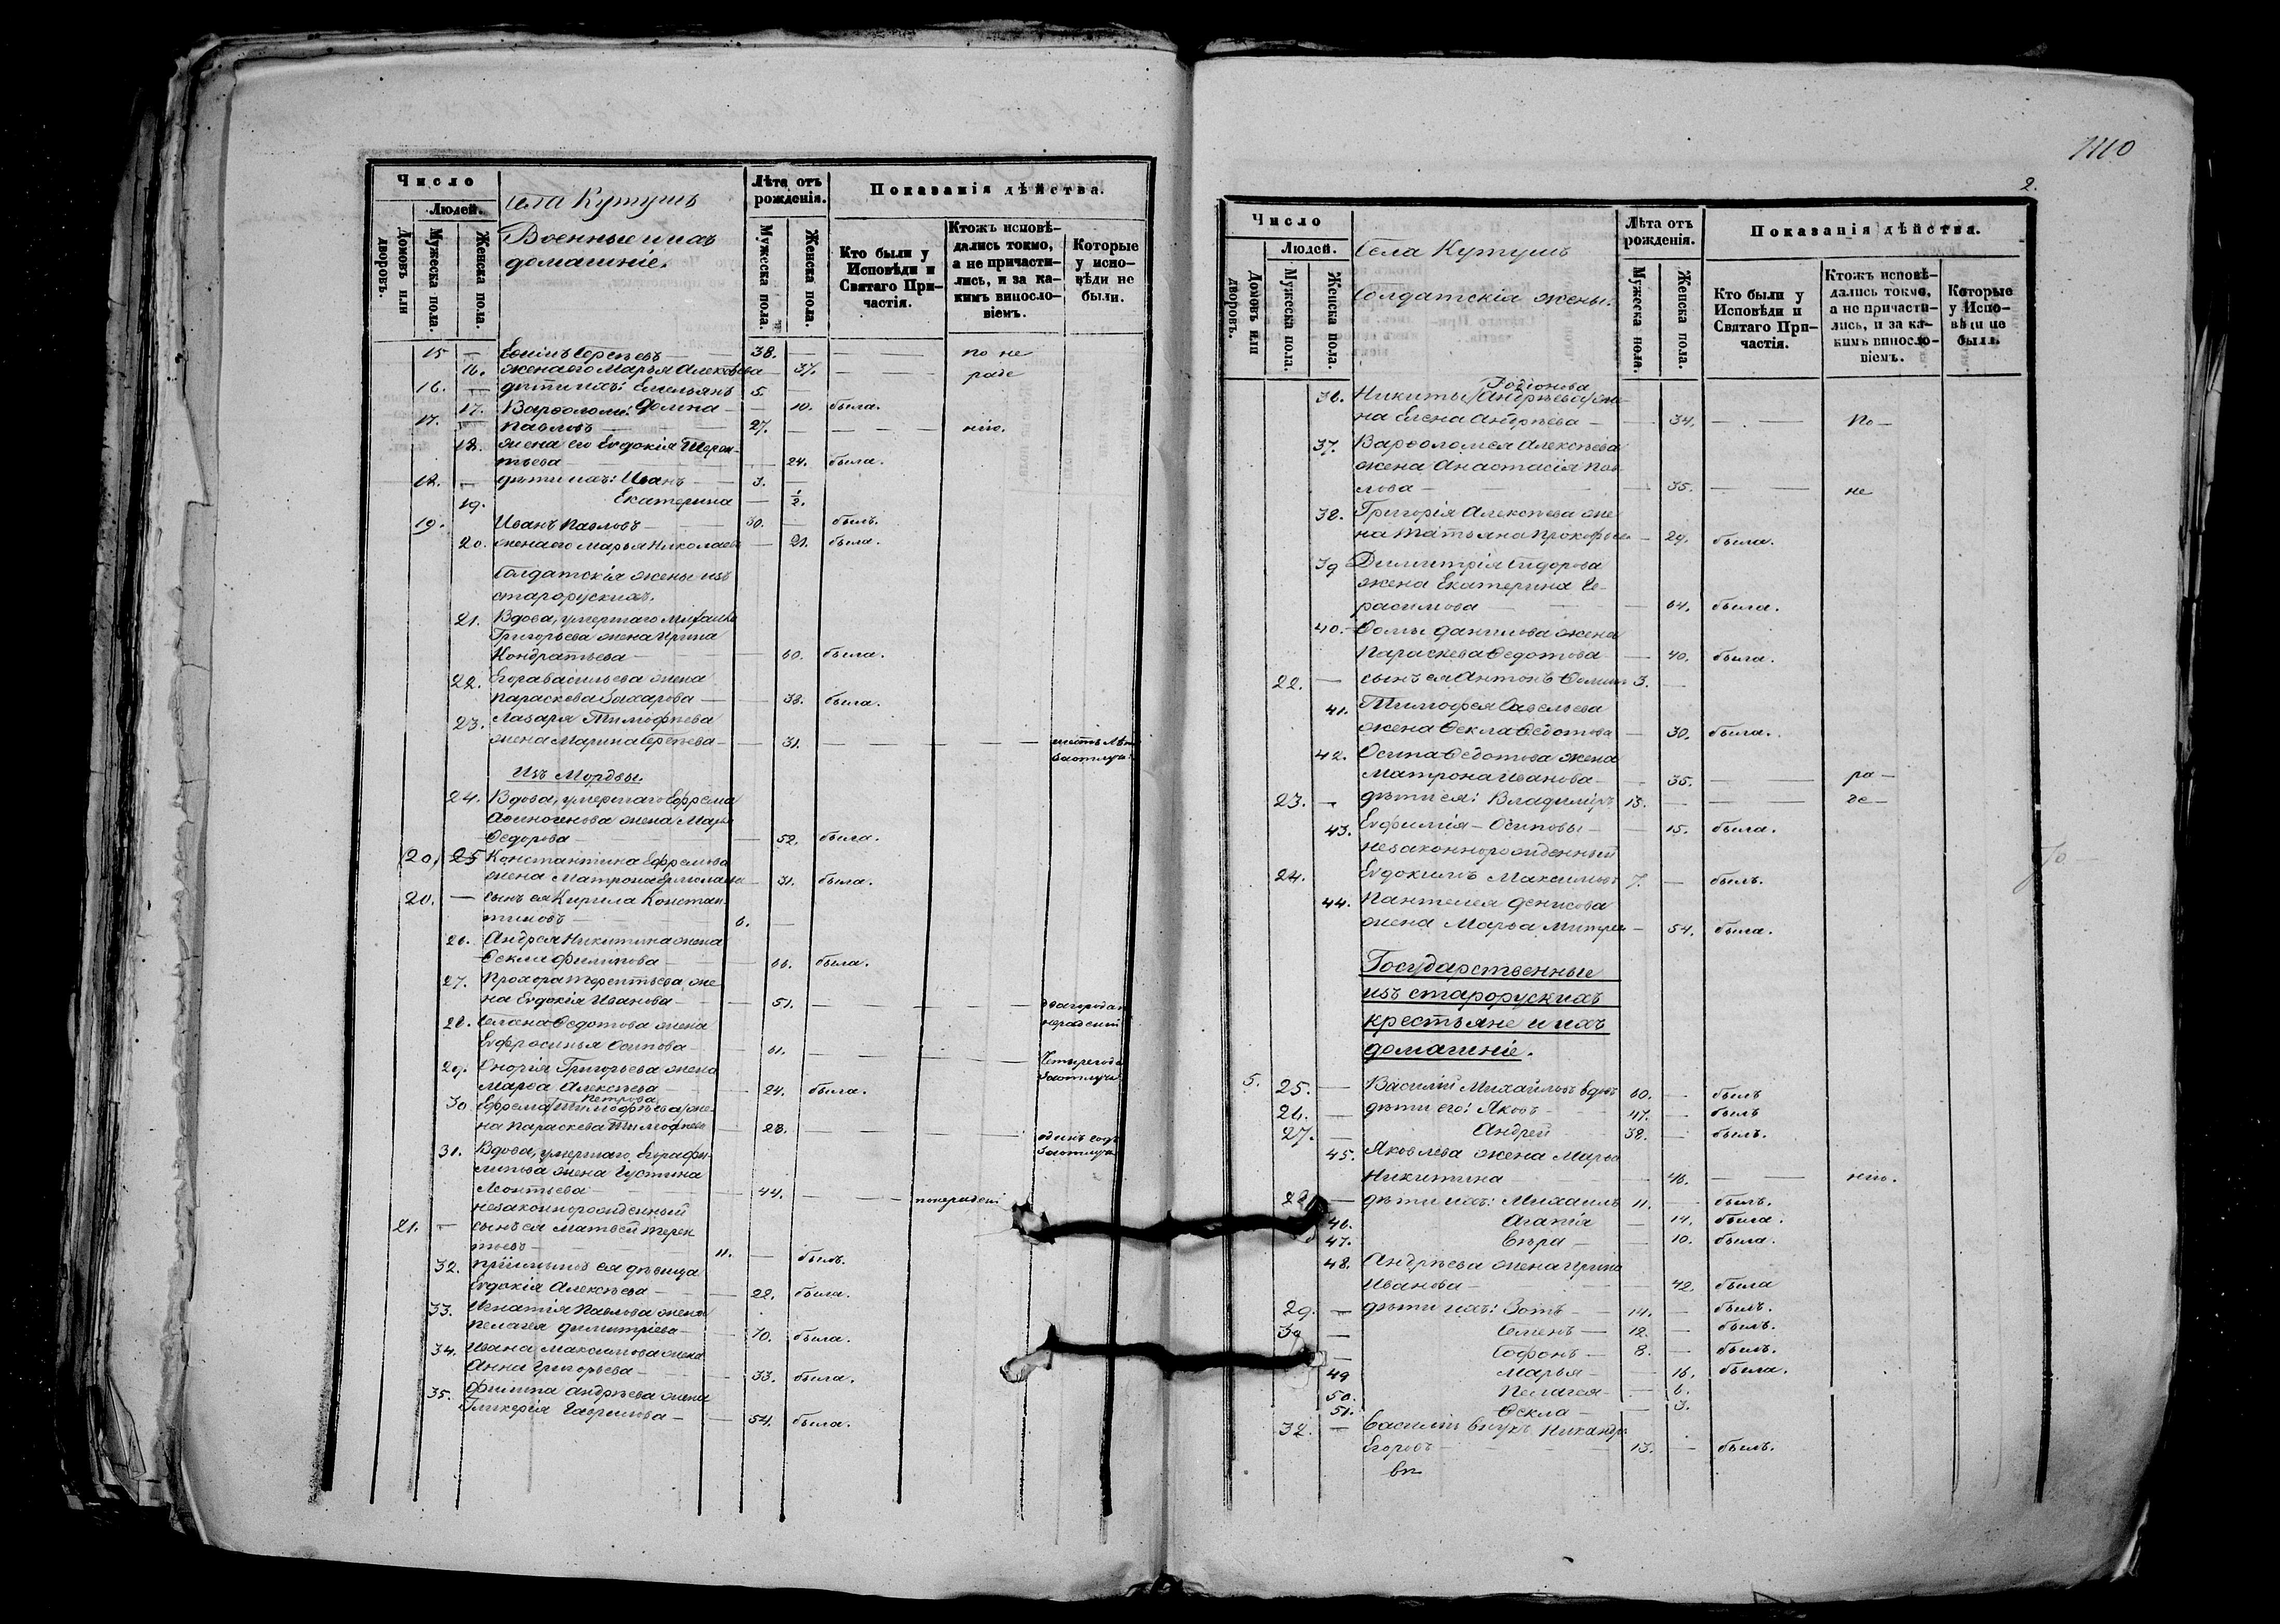 Число
Людей.
Домовъ или дворовъ.
Мужеска пола.
Женска пола.
села Кутушъ
Военные и ихъ
домашніе.
Лѣта отъ рожденія.
Мужеска пола.
Женска пола.
Показанія дѣйства.
Кто были у Исповѣди и Святаго При-частія.
Ктожъ исповѣ-дались токмо, а не причасти-лись, и за ка-кимъ винословіемъ.
Которые у испо-вѣди не были.
15 — Сергѣевъ — 38. — по не
16. жена его Марья Алексѣева — 37. — — раде
16. — дѣти ихъ: Емельянъ 5.
17. Домна — — 10. была.
17. — Варѳоломей Павловъ — 27. — — — нію.
18. жена его Евдокія Терен-
тьева — — 24. была.
18. — дѣти ихъ: Иванъ — 3. —
19. Екатерина — ½.
19. Иванъ Павловъ — 30. — былъ.
20. жена его Марья Николаева — 21. была.
Солдатскія жены изъ
старорускихъ.
21. Вдова, умершаго Михаила
Григорьева жена Ирина
Кондратьева — — 60. была.
22. Егора Васильева жена
Параскева Захарова — — 38. была.
23. Лазаря Тимофѣева
жена Марина Сергѣева — — 31. — — — —
Изъ Мордвы.
24. Вдова, умершаго Ефрема
Аѳиногенова жена Марья
Ѳедорова — — 52. была.
(20) 25 Константина Ефремова
жена Матрона Ермолаева — 31. была.
20. — сынъ ея Кирила Констан-
тиновъ — 6. —
26. Андрея Никитина жена
Ѳекла Филипова — — 66. была.
27. Прохора Терентьева же
на Евдокія Иванова — — 51. — — — два года по
нерадѣнію
28. Ѳедотова жена
Ефросинья Осипова — 61. — — — Четыре года
въ отлучкѣ
29. Григорьева жена
Марѳа Алексѣева — — 24. была.
Петрова
30 Ефрема Тимофѣева же-
на Параскева Тимофеева — 28. — — — одинъ годъ
въ отлучкѣ
31. Вдова, умершаго Егора Фи-
липова жена Устинья
Леонтьева — 44. — — — по нерадѣнію
незаконнорожденный
21. — сынъ ея Матвей Терен
тьевъ — 11. — былъ.
32. пріимышъ ея дѣвица
Евдокія Алексѣева — — 22. была.
33. Игнатія Павлова жена
Пелагея Димитріева — 70. была.
34. Ивана Максимова жена
Анна Григорьева — — 33. была.
35. Филипа Андрѣева жена
Гликерія Гаврилова — — 54. была.
1110
2.
Число
Людей.
Домовъ или дворовъ.
Мужеска пола.
Женска пола.
Села Кутушъ
Солдатскія жены.
Лѣта отъ рожденія.
Мужеска пола.
Женска пола.
Показанія дѣйства.
Кто были у Исповѣди и Святаго При-частія.
Ктожъ исповѣ-дались токмо, а не причасти-лись, и за ка-кимъ винословіемъ.
Которые у Испо-вѣди не были.
Родіонова
36. Никиты Андрѣева же-
на Елена Андрѣева — — 34. — — по —
37. Варѳоломея Алексѣева
жена Анастасія Пав-
лова — — 35. — — не
38. Григорія Алексѣева же
на Татьяна Прокофьева — 24. была.
39 Димитрія Сидорова
жена Екатерина Ге-
расимова — — 64. была.
40. Ѳомы Данилова жена
Параскева Ѳедотова — 40. была.
22. — сынъ ея Антонъ Ѳоминъ 3. —
41. Тимофея Савельева
жена Ѳекла Ѳедотова — 30. была.
42. Осипа Ѳедотова жена
Матрона Иванова — — 35. — — ра —
23. — дѣти ея: Владиміръ 13. — — де —
43. Евфимія — Осиповы — — 15. была.
незаконнорожденный
24. Евдокимъ Максимовъ 7. — былъ.
44. Пантелея Денисова
жена Марѳа — 54. была.
Государственные
изъ старорускихъ
крестьяне и ихъ
домашніе.
5. 25. — Василій Михайловъ вдовъ 60. — былъ
26. — дѣти его: Яковъ — 47. — былъ
27. — Андрей — 38. — былъ.
45. Яковлева жена Марѳа
Никитина — — 46. — — нію.
28 — дѣти ихъ: Михаилъ 11. — былъ.
46. Агапія — 14. была.
47. Вѣра — — 10. была.
48. Андрѣева жена Ирина
Иванова — — 42. была
29. — дѣти ихъ: Зотъ — 14. — былъ.
30 — Семенъ — 12. — былъ.
— Софонъ — 8. — былъ.
49 Марья — — 16. была.
50. Пелагея — — 6.
51. Ѳекла — — 3.
32. — Василія внукъ Никандръ
Егоровъ — 13. — былъ.
вп